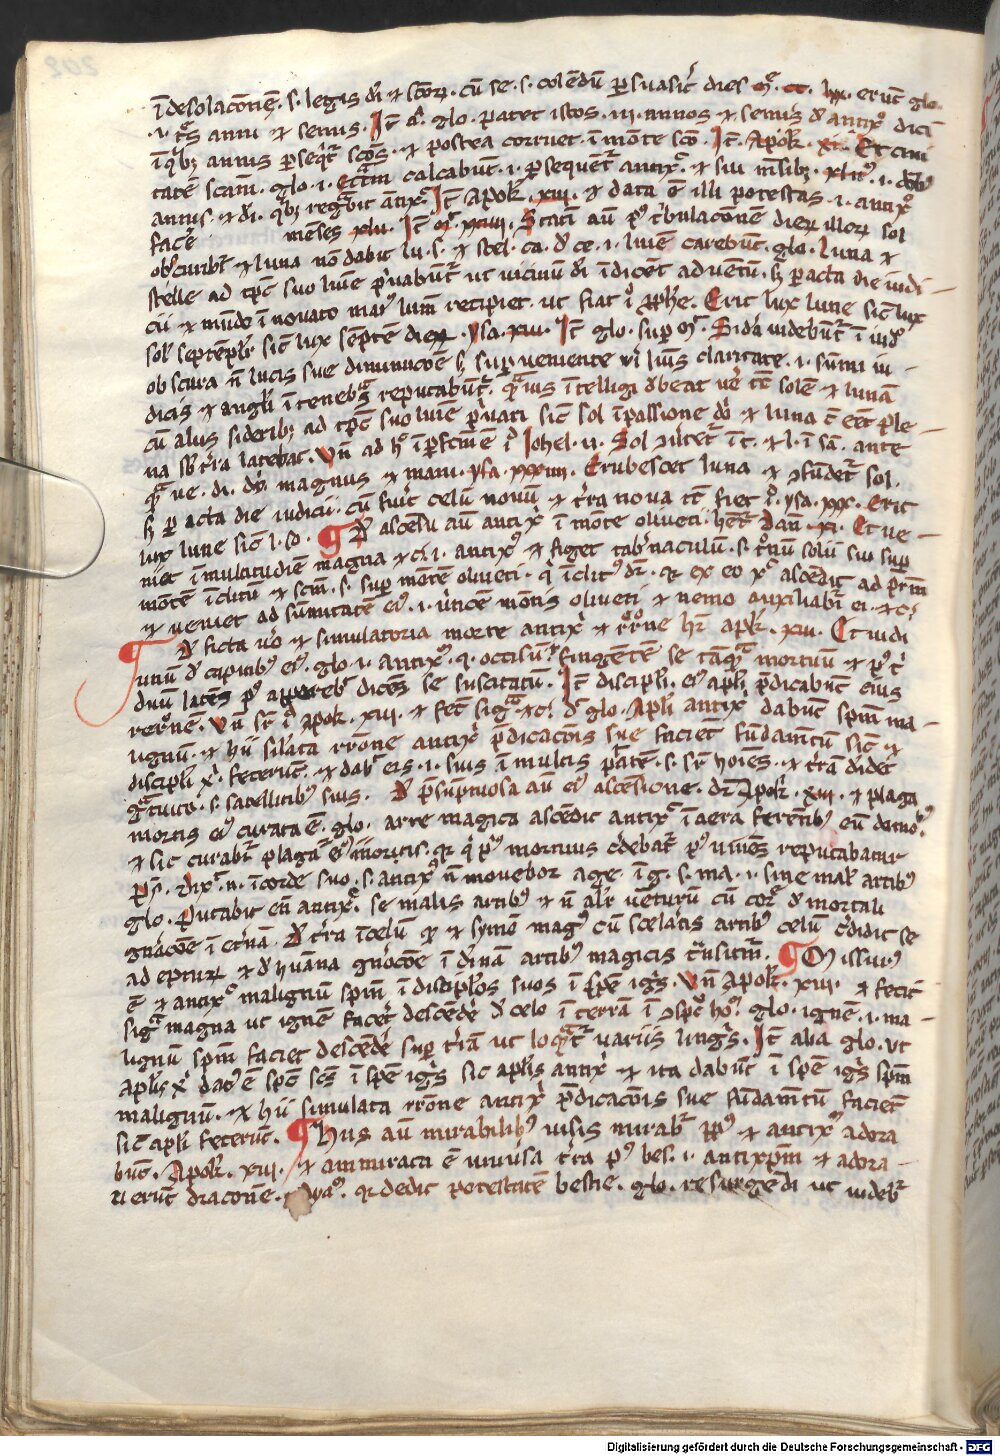 ī desolacōnē . s . legis dī et scōꝝ . cū se . s . colēdū ꝑsuasit dies mͤ . cc . lxx . erūt glo
. i . tͬs anni et semis . It̄ d . glo . patet istos . iii . annos et semis de antixͦ dici
ī qͥbꝫ annis ꝑseqͥt scōs . et postea corruet ī monte scō . It̄ . Apok̄ . xi . Et civi
tatē scām . glo . i . Ecc̄am calcabūt . i . ꝑsequent antixͣ . et sui mēsibꝫ . xlii
annis . et di . qͥbꝫ regͣbit antixͣ It̄ Apok̄ . xiii . et data ē illi potestas . i . antixͦ
facē menses xlii . It̄ mͭ . xxiiii . Statī aū pͦ tͥbulacōnē dieꝝ illoꝝ sol
obscurabͥt et luna nō dabit lu . s . et stel . ca . de ce . i . lumē carebūt . glo . Luna et
stelle ad tp̄s suo lumē pͥvabūt ut vicinū dī īdicēt adventū . sꝫ ꝑacta die iudi
cii et mūdo īnovato maius lumē recipiet . ut fiat iͦ ꝓphē . Erit lux lune sic̄ lux
sol septēpͬ sic̄ lux sēptē dieꝝ . ysa . xxx . It̄ glo . suꝑ mͭ . Sidͣ videbūt ī iudͦ
obscura n̄ lucis sue diminucōē sꝫ suꝑveniente vͥ luīs claritate . i . sūmi iu
dicis et angͥ ī tenebͣ reputabūt . qͣmius ītelligi debeat vͤ tc̄ solē et lunā
cū aliis sideribꝫ ad tp̄s suo luīe pͥvati sic̄ sol ī passione dī et luna ē ecc̄ ple
na sb̄ tͬra latebat . Un̄ ad hͦ īꝑfc̄m ē iͦ Iohel . ii . Sol ꝯvͥtet ī t . et l . ī sā . ante
qͣ ve . di . dī . magnus et mani . ysa . xxiiii . Erubescet luna et ꝯfūdet sol .
sꝫ ꝑ acta die iudicii . cū fuit celū novū et tͬra nova tc̄ fiet iͦ . ysa . xxx . Erit
lux lune sic̄ l . so . ¶ De ascēsu aū antixͥ ī mōte oliveti . het̄ Dan̄ . xi . Et ve
niet ī multitudīe magna et c̄ i . antixͦ et figet tabͬnaculū . s . tͬnū soliū suū suꝑ
mōtē īclitū et scm̄ . s . suꝑ montē oliveti . qͥ īclitͦ dͬ . qͥ ex eo xͣ ascēdit ad pͬm
et veniet ad sūmitatē eiͦ . i . vͬticē mōtis oliveti et nemo auxiliabit ei . et cͣ
¶ De ficta vͦo et simulatoria morte antixͥ et rͬoͦne hr̄ apok̄ . xiii . Et vidi
unū de capitibꝫ eiͦ . glo . i . antixͦ . qͥ occisū fingentē se tāqͣ mortuū et pͦ tͥ
duū latēs pͦ a dicēs se suscitatū . It̄ discipli . eiͦ apli p̄dicabūt eius
rͬoͦnē . Un̄ sr̄ iͦ apok̄ . xiii . et fec̄ signͣ et cͣ . dͥ glo . Apli antixͥ dabūt sp̄m ma
lignū . et hii similata rr̄one antixͥ p̄dicacōis sue faciēt fūdamtū sic̄ et
discipli xͥ . fecerūt . et dabit eis . i . suis ī multis p̄atē . s . sr̄ hoīēs . et tͬrā dīdēt
gͣtuito . s . satellitibꝫ suis . De p̄sūptuosa aū eiͦ ascēsione . dͬ Apok̄ . xiii . et plaga
mortis eiͦ curata ē . glo . arte magica ascēdit antixͣ ī aera ferentibꝫ eū demōibꝫ
et sic curabit plaga eiͦ mortis . qͥ qͥ pͦ mortuus cͬdebat pͦ vivēs reputabatur
p̄s . dixͭ . n . ī corde suo . s . antixͦ n̄ movebor a ge . ī g . s . ma . i . sine malͥ artibꝫ
glo . Putabit en̄ antixͣ . se malis artibꝫ et n̄ alͥr vētuꝝ cū cor de mortali
gnacōē ī etͬnā . De tͬra ī celū qͥ et symō magͦ cū scelatis artibꝫ celū cͬdidit se
ad epturꝝ et de huāna gnōcōē ī dīnā artibꝫ magicis tͬnsitur̄ . ¶ Missurꝰ
ē et antixͦ malignū sp̄m ī discipłos suos ī sp̄e ignͥs . Un̄ Apok̄ . xiii . et fecit
signͣ magna ut ignē facͤt descēdē de celo ī terrā ī ꝯspc̄ hoͥ . glo . ignē . i . ma
lignū sp̄m faciet descēdē suꝑ tͬrā ut loqͣtͬ variis linguͥs . It̄ alia glo . ut
Aplis xͥ datͦ ē sp̄c scs̄ ī sp̄e ignͥs sic aplis antixͥ et ita dabūt ī spē ignͥs sp̄m
malignū . et hii simulata rr̄one antixͥ p̄dicacōis sue fūdamtū faciēt
sic̄ apli fecerūt . ¶ Hiis aū mirabilibꝫ visis mirabit ppͦ et antixͫ adora
būt . Apok̄ . xiii . et ammirata ē univͥsa tͬra pͦ bes . i . antixp̄m et adora
verūt draconē . qͥ dedit potestatē bestie . glo . resurgēdi ut videbͬ
Digitalisierung gefördert durch die Deutsche Forschungsgemeinschaft - DFG